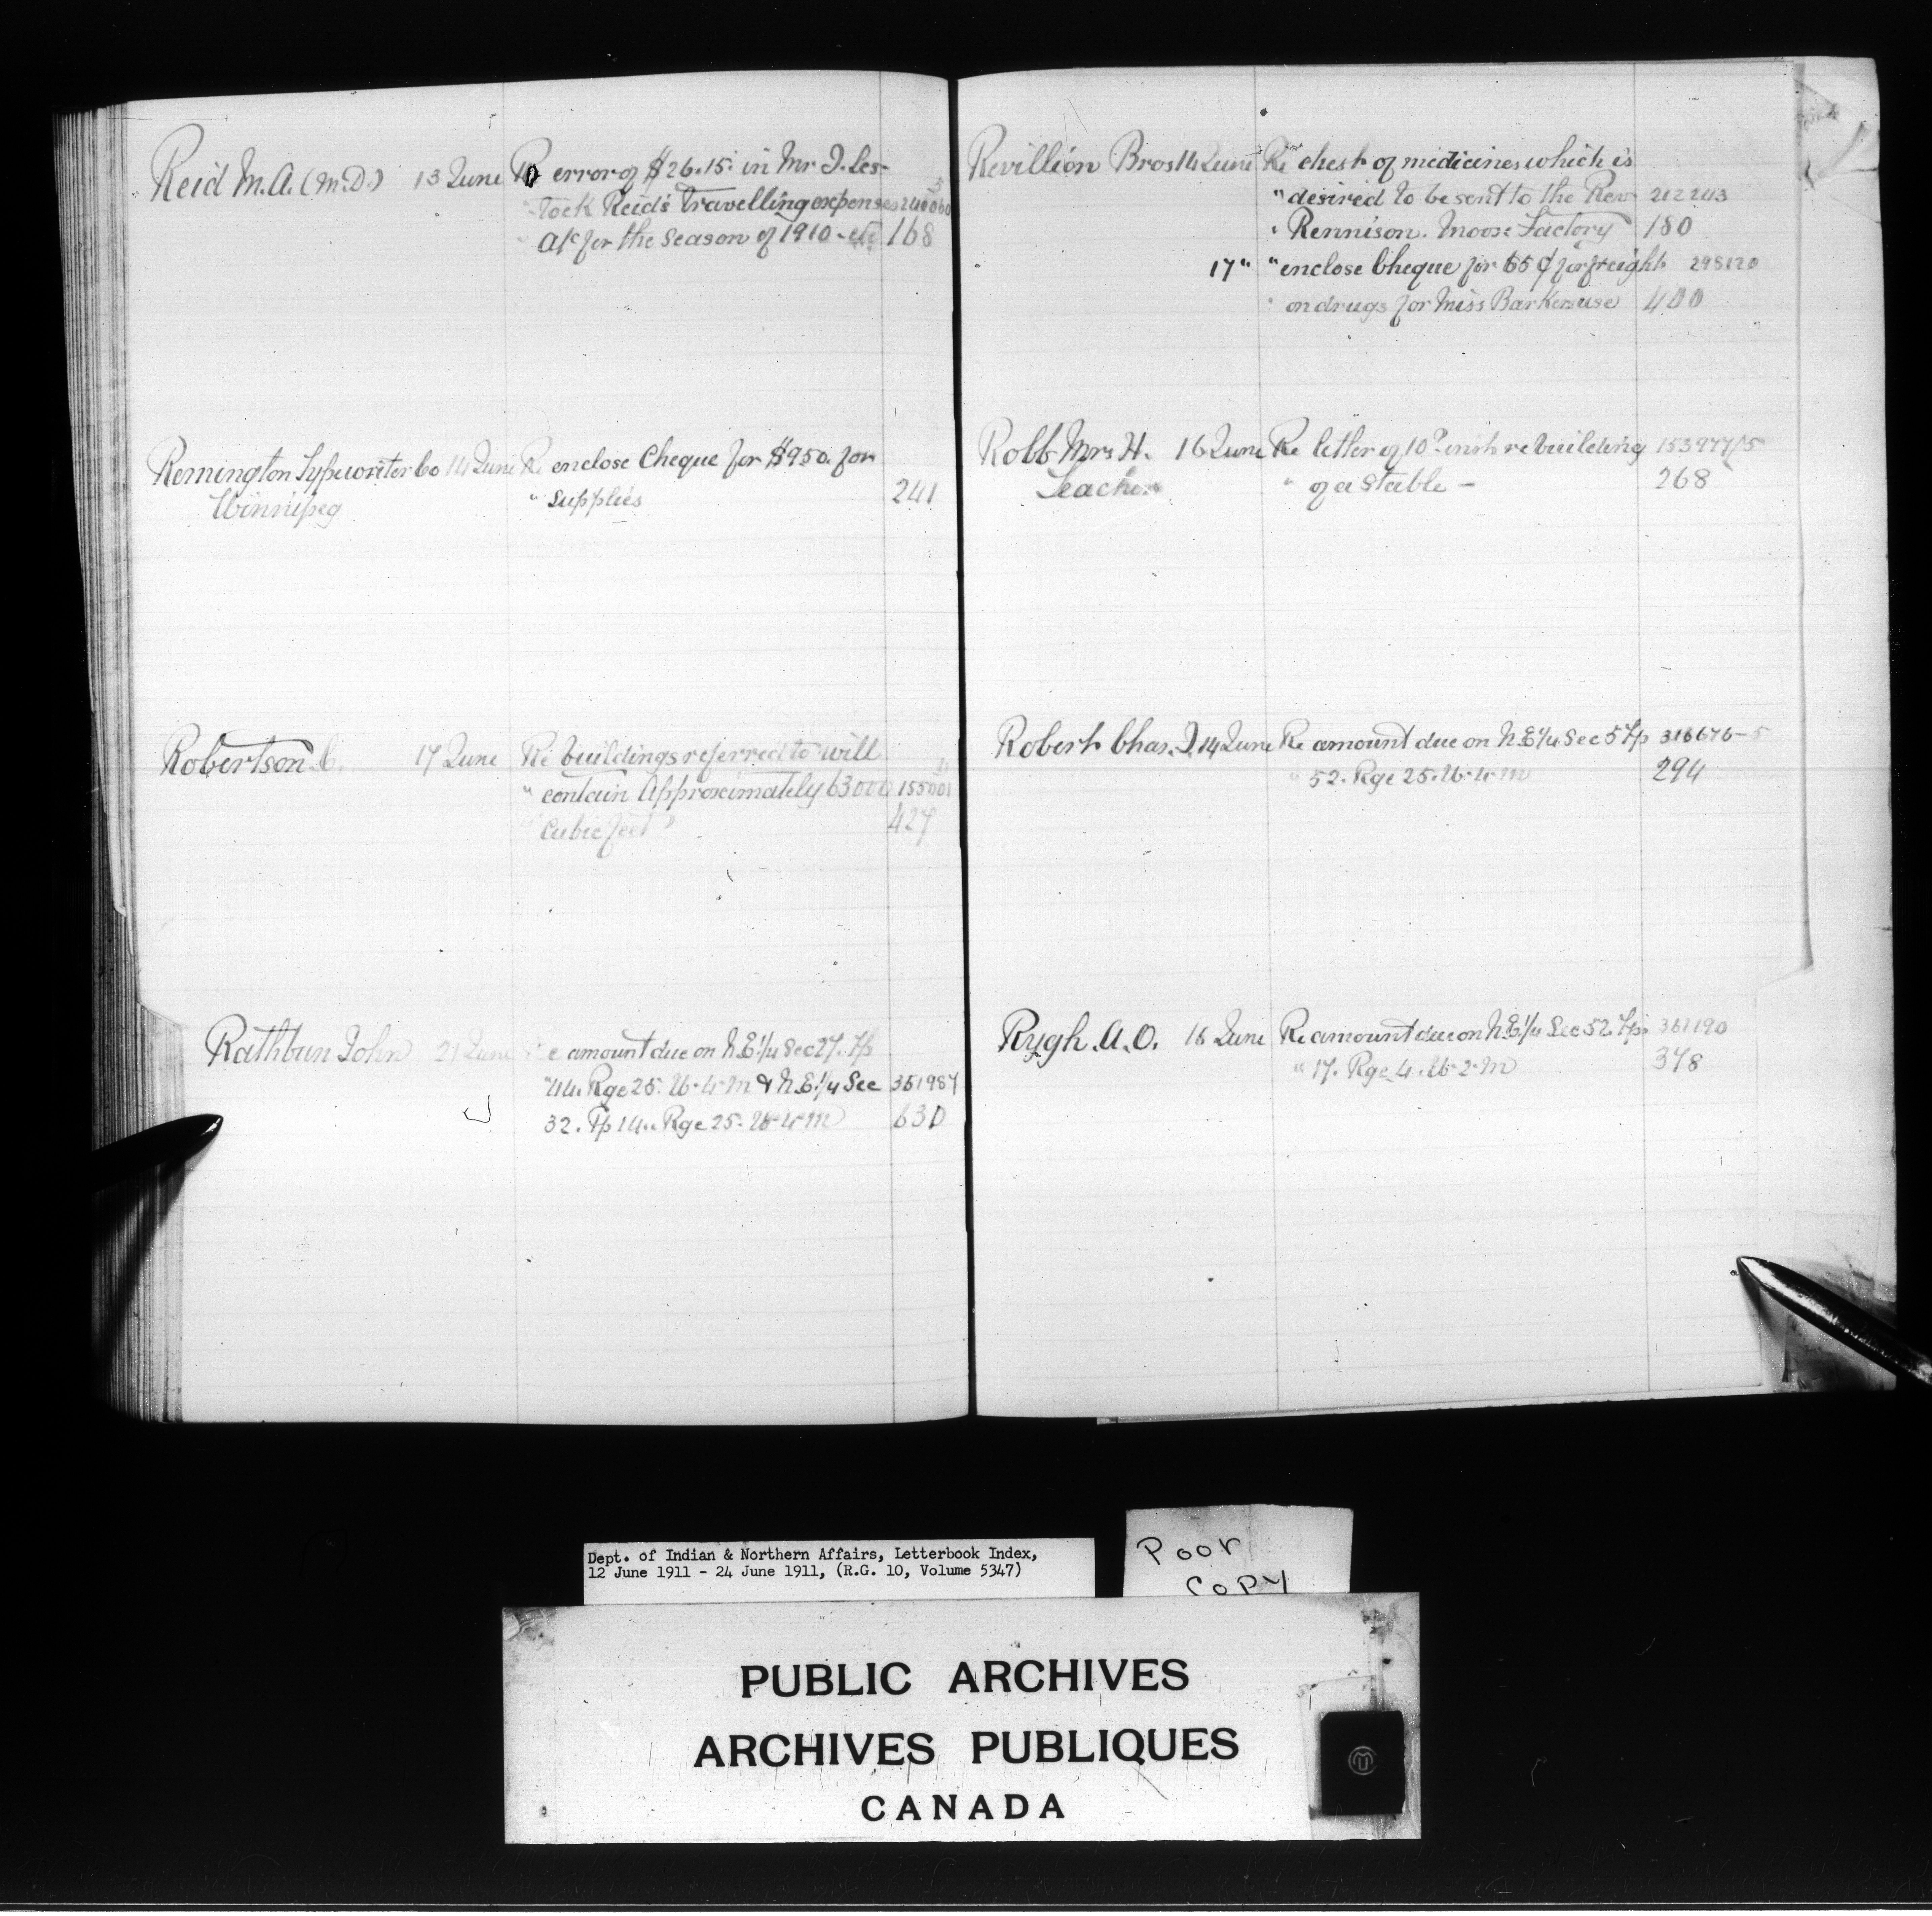 Reid M.A. (M.D.) 13 June Re error of $26.15 in Mr J. Les-
tock Reid's travelling expenses 240060
a/c for the season of 1910 - etc 168
Remington Typewriter Co 14 June Re enclose Cheque for $950. for
Winnipeg " supplies 241
Robertson. C. 17 June Re buildings referred to will
" contain approximately 63000 155001
" Cubic feet 427
Rathbun John 21 June Re amount due on N.E. 1/4 Sec 27. Tp
"44. Rge 25. W-4-M & N.E. 1/4 Sec 351987
32. Tp 14. Rge 25. W-4-M 630
Revillion Bros 14 June Re chest of medicines which is
" desired to be sent to the Rev 212243
" Rennison. Moose Factory 180
17 " " enclose Cheque for 65 ¢ for freight 298120
" on drugs for Miss Barkers use 400
Robb Mrs H. 16 June Re letter of 10th inst re building 153977/5
Teacher " of a stable - 268
Robert Chas. J. 14 June Re amount due on N.E. 1/4 Sec 5 Tp 318676-5
" 52. Rge 25. W-4-M 294
Rygh. A.O. 16 June Re amount due on N.E. 1/4 Sec 52. Tp. 361190
" 17. Rge 4. W-2-M 378
Dept. of Indian & Northern Affairs, Letterbook Index,
12 June 1911 - 24 June 1911, (R.G. 10, Volume 5347)
Poor
Copy
PUBLIC ARCHIVES
ARCHIVES PUBLIQUES
CANADA